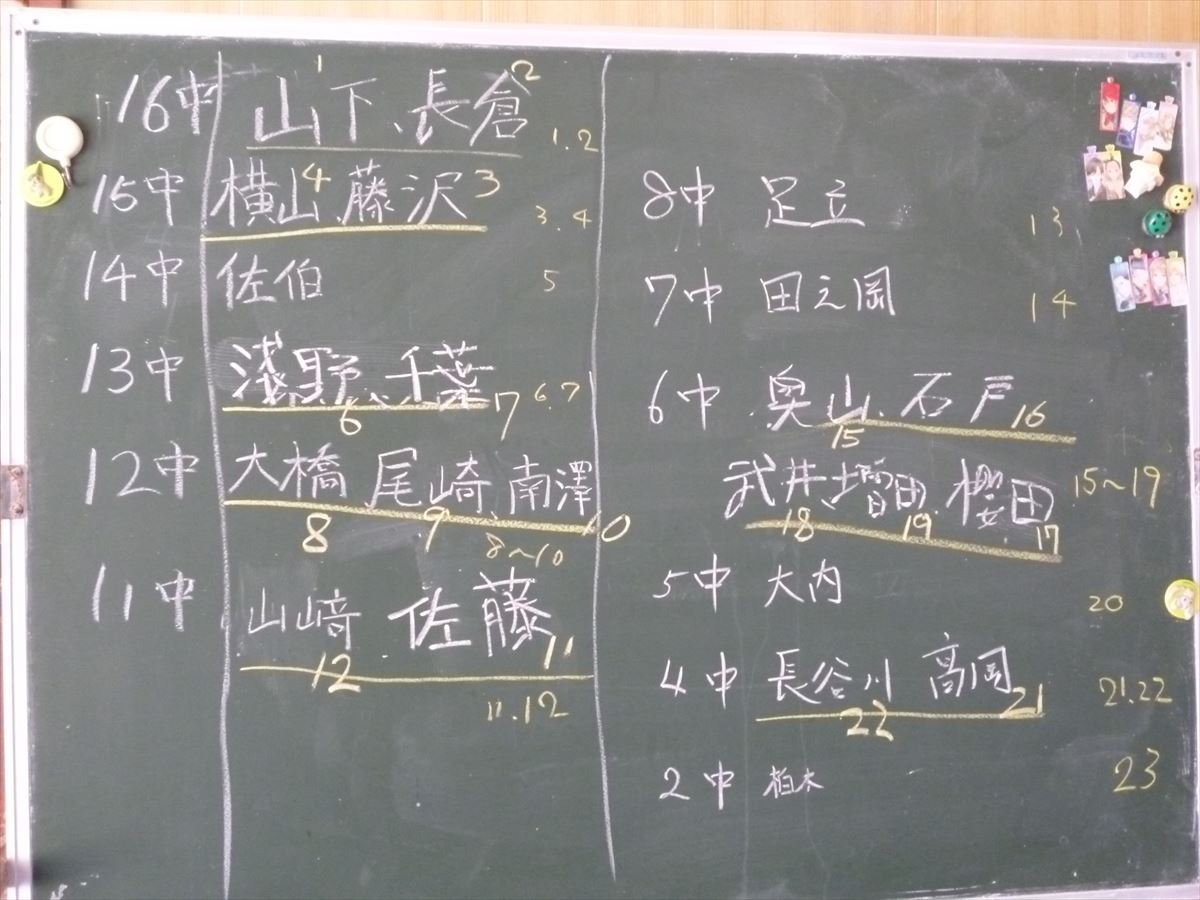 1 2
16中 山下、長倉 1.2
15中 横山4 藤沢3 3.4
14中 佐伯 5
13中 淺野、千葉 6.7
6 7
12中 大橋 尾崎、南澤
8 9 10
8〜10
11中 山﨑 佐藤
12 11
11.12
8中 足立 13
7中 田之岡 14
6中 奥山、石戸
15 16
武井、増田 櫻田 15〜19
18 19 17
5中 大内 20
4中 長谷川 高岡 21.22
22 21
2中 柏木 23